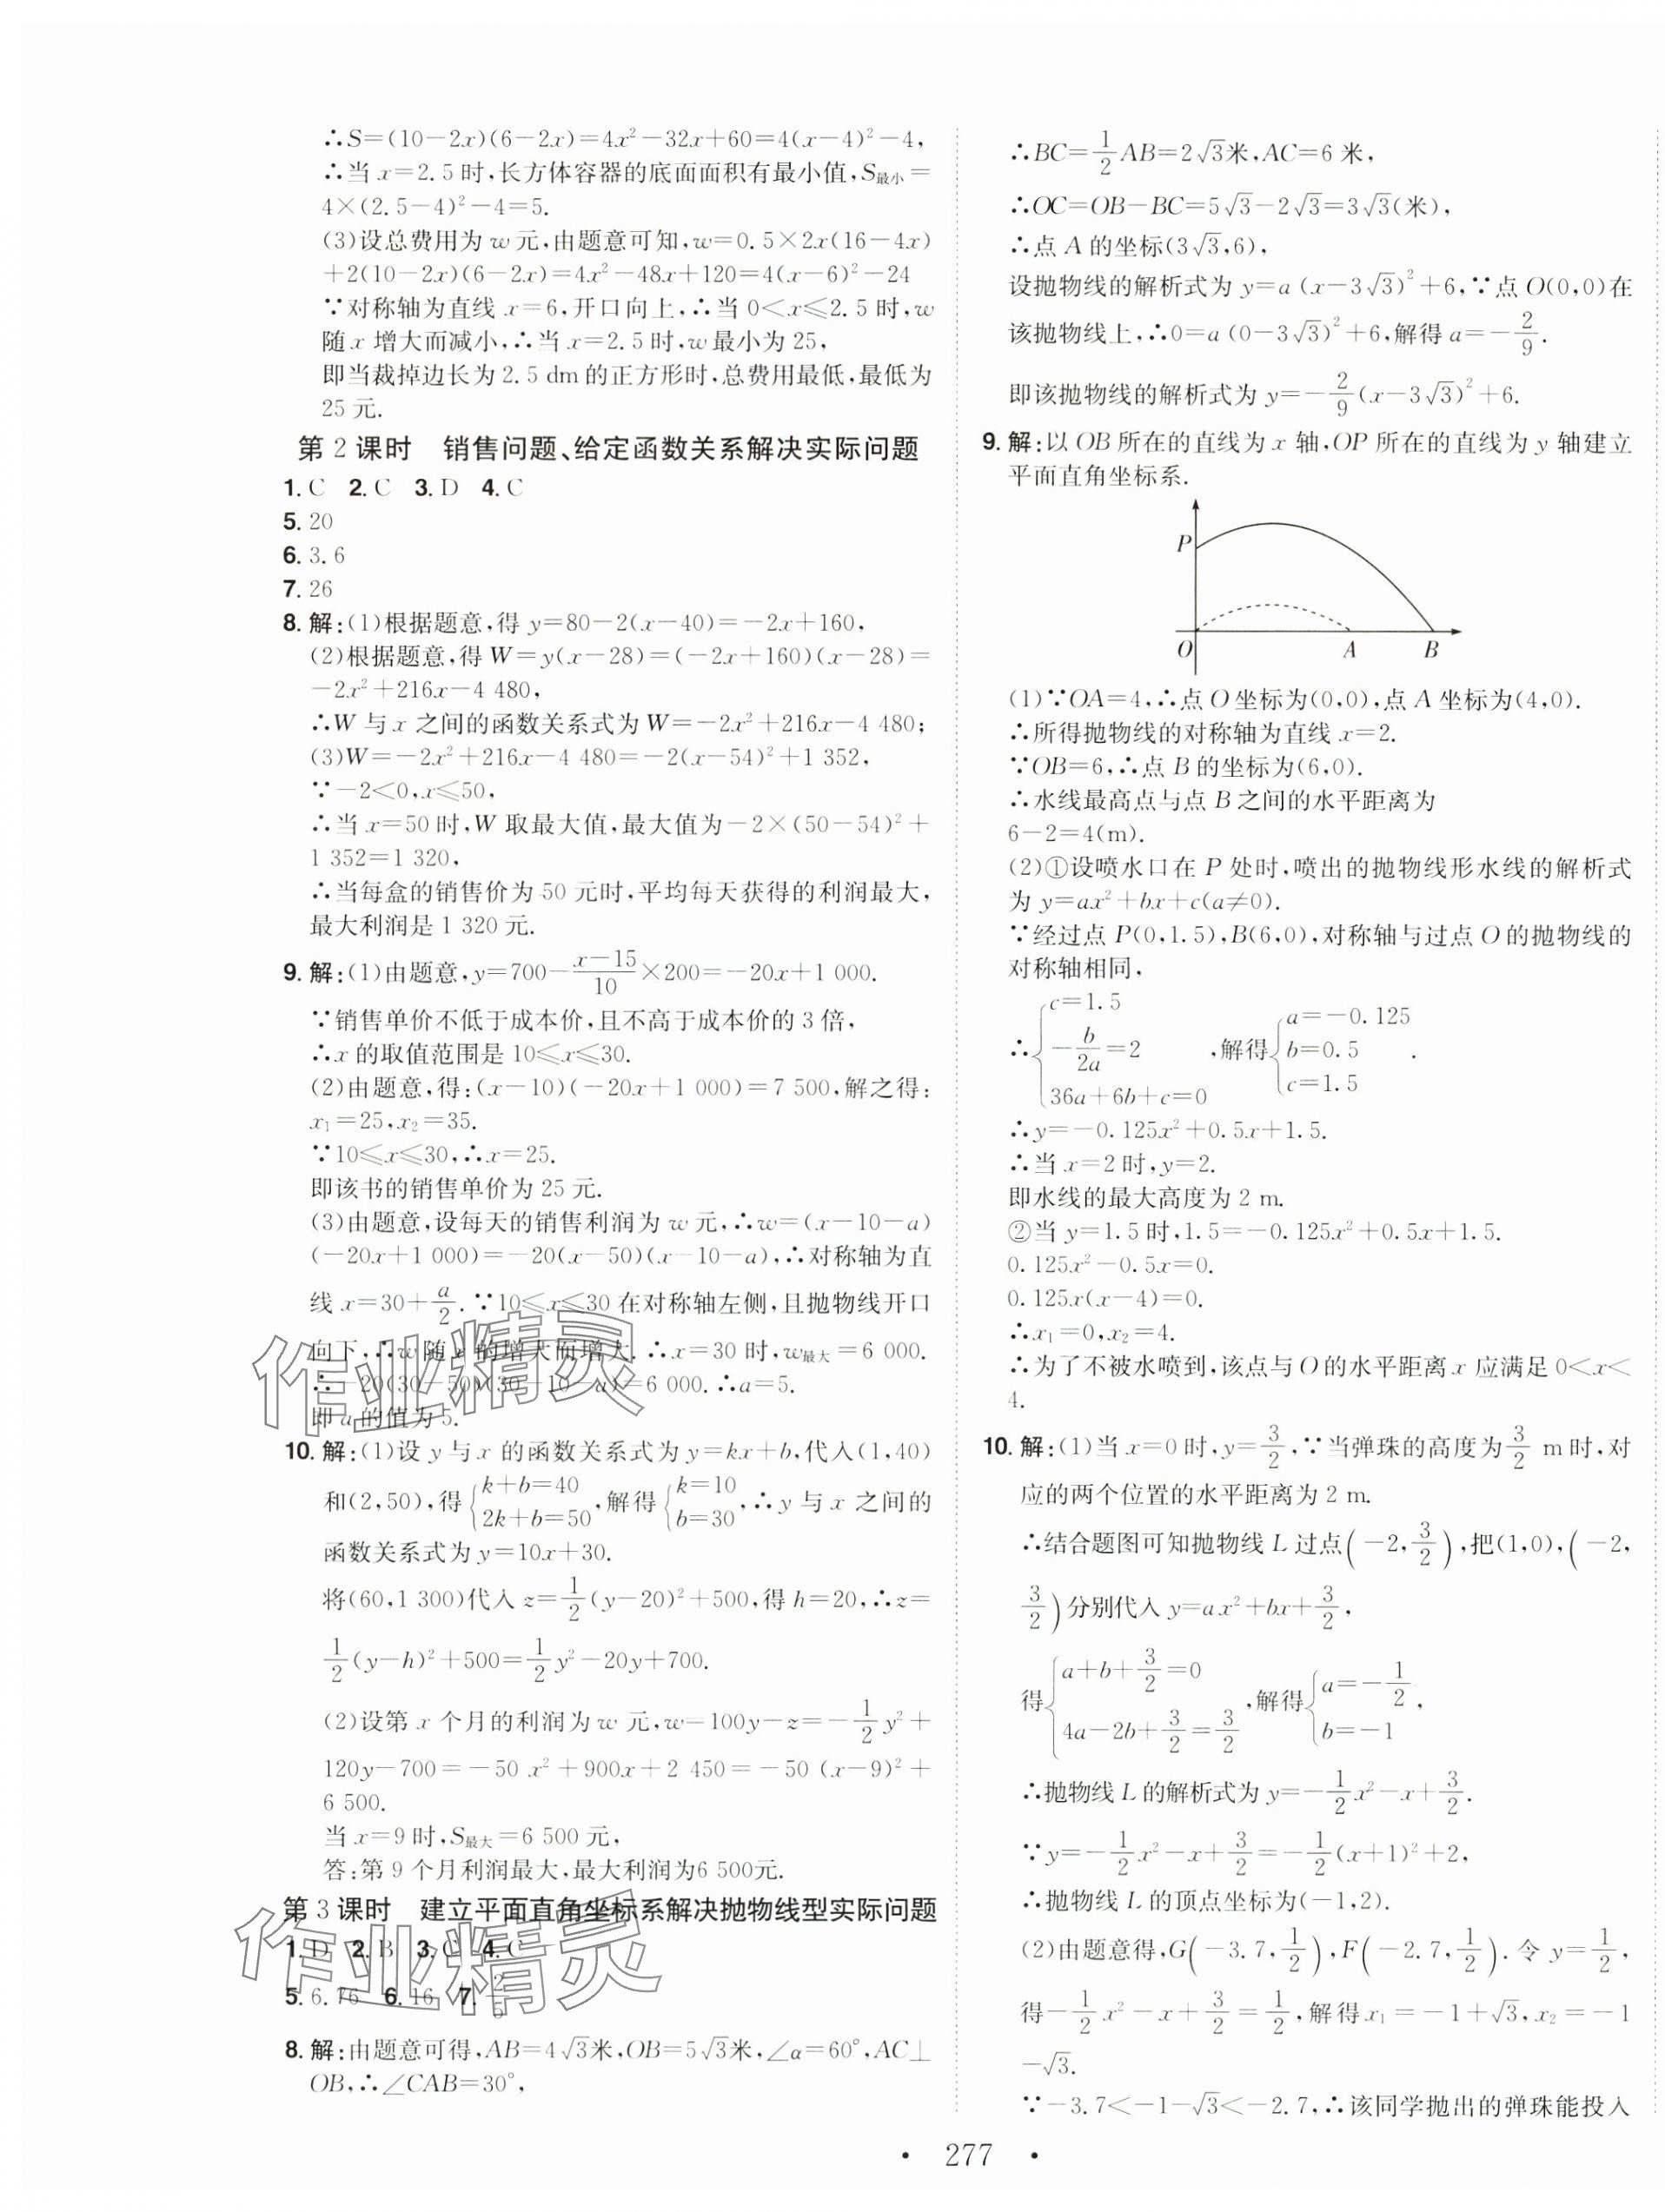 ∴S=(10-2x)(6-2x)=4x²-32x+60=4(x-4)²-4,
∴当 x=2.5 时,长方体容器的底面面积有最小值,S最小=
4×(2.5-4)²-4=5.
(3)设总费用为 w 元,由题意可知,w=0.5×2x(16-4x)
+2(10-2x)(6-2x)=4x²-48x+120=4(x-6)²-24
∵对称轴为直线 x=6,开口向上,∴当 0<x≤2.5 时,w
随 x 增大而减小,∴当 x=2.5 时,w 最小为 25,
即当裁掉边长为 2.5 dm 的正方形时,总费用最低,最低为
25 元.
第 2 课时 销售问题、给定函数关系解决实际问题
1. C 2. C 3. D 4. C
5. 20
6. 3.6
7. 26
8. 解:(1)根据题意,得 y=80-2(x-40)=-2x+160,
(2)根据题意,得 W=y(x-28)=(-2x+160)(x-28)=
-2x²+216x-4 480,
∴W 与 x 之间的函数关系式为 W=-2x²+216x-4 480;
(3)W=-2x²+216x-4 480=-2(x-54)²+1 352,
∵-2<0,x≤50,
∴当 x=50 时,W 取最大值,最大值为-2×(50-54)²+
1 352=1 320,
∴当每盒的销售价为 50 元时,平均每天获得的利润最大,
最大利润是 1 320 元.
9. 解:(1)由题意,y=700-(x-15)/10×200=-20x+1 000.
∵销售单价不低于成本价,且不高于成本价的 3 倍,
∴x 的取值范围是 10≤x≤30.
(2)由题意,得:(x-10)(-20x+1 000)=7 500,解之得:
x₁=25,x₂=35.
∵10≤x≤30,∴x=25.
即该书的销售单价为 25 元.
(3)由题意,设每天的销售利润为 w 元,∴w=(x-10-a)
(-20x+1 000)=-20(x-50)(x-10-a),∴对称轴为直
线 x=30+a/2.∵10≤x≤30 在对称轴左侧,且抛物线开口
向下,∴w 随 x 的增大而增大.∴x=30 时,w最大=6 000.
∴-20(30-50)(30-10-a)=6 000.∴a=5.
即 a 的值为 5.
10. 解:(1)设 y 与 x 的函数关系式为 y=kx+b,代入(1,40)
和(2,50),得{k+b=40 2k+b=50,解得{k=10 b=30,∴y 与 x 之间的
函数关系式为 y=10x+30.
将(60,1 300)代入 z=1/2(y-20)²+500,得 h=20,∴z=
1/2(y-h)²+500=1/2y²-20y+700.
(2)设第 x 个月的利润为 w 元,w=100y-z=-1/2y²+
120y-700=-50x²+900x+2 450=-50(x-9)²+
6 500.
当 x=9 时,S最大=6 500 元,
答:第 9 个月利润最大,最大利润为6 500元.
第 3 课时 建立平面直角坐标系解决抛物线型实际问题
1. D 2. B 3. C 4. C
5. 6.76 6. 16 7.
8. 解:由题意可得,AB=4√3米,OB=5√3米,∠α=60°,AC⊥
OB,∴∠CAB=30°,
∴BC=1/2AB=2√3米,AC=6 米,
∴OC=OB-BC=5√3-2√3=3√3(米),
∴点 A 的坐标(3√3,6),
设抛物线的解析式为 y=a(x-3√3)²+6,∵点 O(0,0)在
该抛物线上,∴0=a(0-3√3)²+6,解得 a=-2/9.
即该抛物线的解析式为 y=-2/9(x-3√3)²+6.
9. 解:以 OB 所在的直线为 x 轴,OP 所在的直线为 y 轴建立
平面直角坐标系.
P
O A B
(1)∵OA=4,∴点 O 坐标为(0,0),点 A 坐标为(4,0).
∴所得抛物线的对称轴为直线 x=2.
∵OB=6,∴点 B 的坐标为(6,0).
∴水线最高点与点 B 之间的水平距离为
6-2=4(m).
(2)①设喷水口在 P 处时,喷出的抛物线形水线的解析式
为 y=ax²+bx+c(a≠0).
∵经过点 P(0,1.5),B(6,0),对称轴与过点 O 的抛物线的
对称轴相同,
∴{c=1.5 -b/2a=2 36a+6b+c=0,解得{a=-0.125 b=0.5 c=1.5.
∴y=-0.125x²+0.5x+1.5.
∴当 x=2 时,y=2.
即水线的最大高度为 2 m.
②当 y=1.5 时,1.5=-0.125x²+0.5x+1.5.
0.125x²-0.5x=0.
0.125x(x-4)=0.
∴x₁=0,x₂=4.
∴为了不被水喷到,该点与 O 的水平距离 x 应满足 0<x<
4.
10. 解:(1)当 x=0 时,y=3/2,∵当弹珠的高度为3/2 m 时,对
应的两个位置的水平距离为 2 m.
∴结合题图可知抛物线 L 过点(-2,3/2),把(1,0),(-2,
3/2)分别代入 y=ax²+bx+3/2,
得{a+b+3/2=0 4a-2b+3/2=3/2,解得{a=-1/2 b=-1,
∴抛物线 L 的解析式为 y=-1/2x²-x+3/2.
∵y=-1/2x²-x+3/2=-1/2(x+1)²+2,
∴抛物线 L 的顶点坐标为(-1,2).
(2)由题意得,G(-3.7,1/2),F(-2.7,1/2).令 y=1/2,
得-1/2x²-x+3/2=1/2,解得x₁=-1+√3,x₂=-1
-√3.
∵-3.7<-1-√3<-2.7,∴该同学抛出的弹珠能投入
· 277 ·
作业精灵
作业精灵